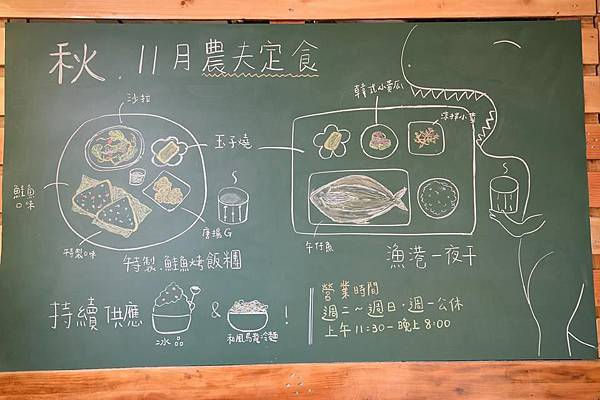 秋．11月農夫定食
沙拉
玉子燒
鮭魚
口味
特製口味
唐揚G
特製．鮭魚烤飯糰
韓式小黃瓜
小菜
午仔魚
漁港一夜干
持續供應
冰品
&
和風烏龍冷麵
!
營業時間
週二～週日．週一公休
上午11:30－晚上8:00